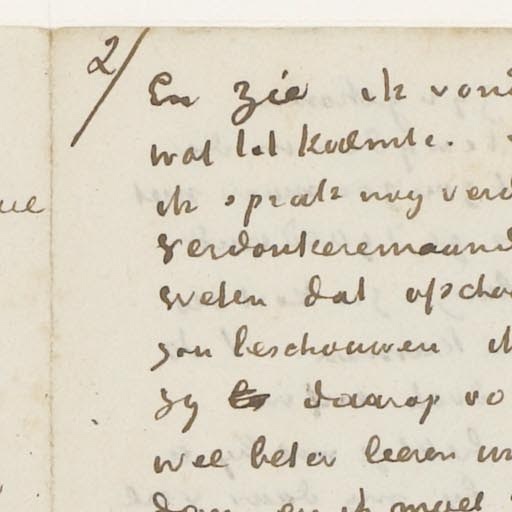 2/
En zie ik vond
wat tot kalmte.
ik sprak nog verd
verdonkeremaand
weten dat ofscho
zou beschouwen ik
zy daarop vo
wel beter leeren
dan en ik moet